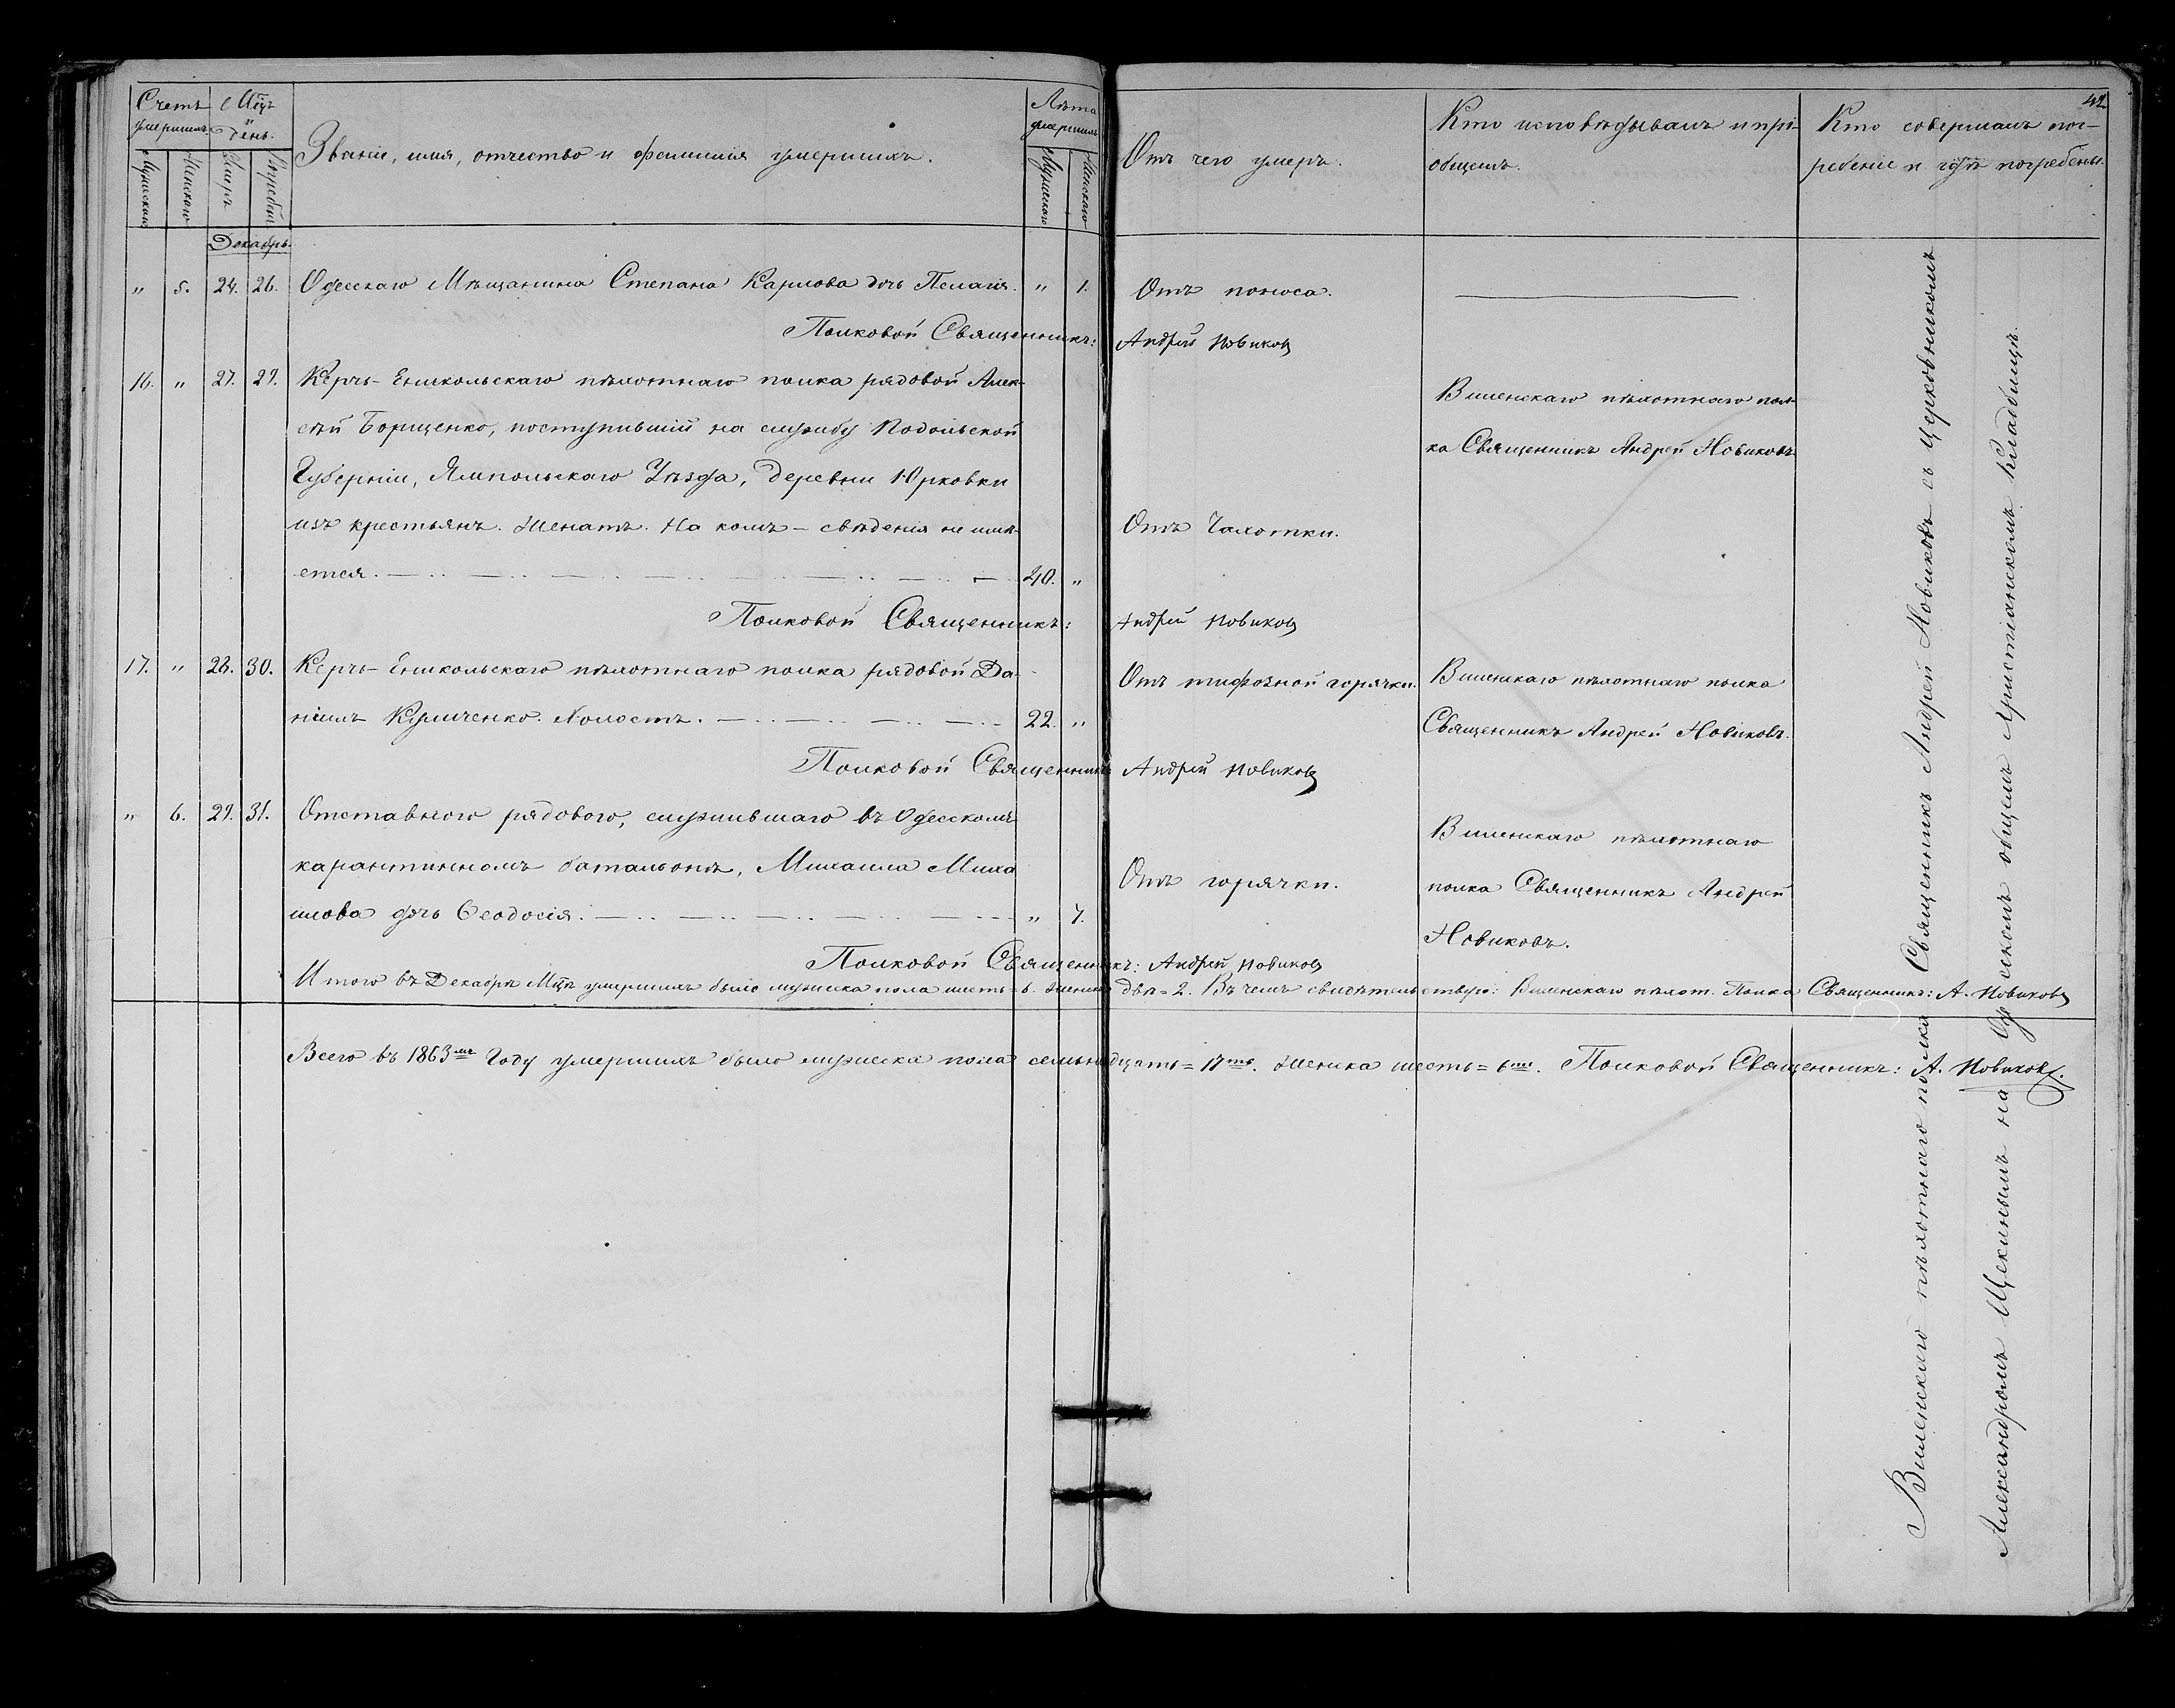 42
Счетъ умершихъ
Мѣсяцъ и день.
Званіе, имя, отчество и фамилія умершихъ.
Лѣта умершихъ
Отъ чего умеръ.
Кто исповѣдывалъ и прі-
общилъ.
Кто совершалъ пог-
ребеніе и гдѣ погребены.
Мужскаго
Женскаго
Умеръ
Погребенъ
Мужскаго
Женскаго
Декабрь.
" 5. 24. 26. Одесскаго Мѣщанина Степана Карпова дочь Пелагія. " 1. Отъ поноса.
Полковой Священникъ: Андрей Новиковъ
16. " 27. 29. Керчь-Еникольскаго пѣхотнаго полка рядовой Алек-
сѣй Борщенко, поступившій на службу Подольской
Губерніи, Ямпольскаго Уѣзда, деревни Юрковки
изъ крестьянъ. Женатъ. На комъ – свѣденія не имѣ-
ется. 40. "
Отъ Чахотки.
Виленскаго пѣхотнаго пол-
ка Священникъ Андрей Новиковъ
Полковой Священникъ: Андрей Новиковъ
17. " 28. 30. Керчь-Еникольскаго пѣхотнаго полка рядовой Да-
ніилъ Кушченко. Холостъ. 22. "
Отъ тифозной горячки.
Виленскаго пѣхотнаго полка
Священникъ Андрей Новиковъ.
Полковой Священникъ Андрей Новиковъ
" 6. 29. 31. Отставного рядового, служившаго въ Одесскомъ
карантинномъ баталіонѣ, Михаила Миха
илова дочь Ѳеодосія. " 7.
Отъ горячки.
Виленскаго пѣхотнаго
полка Священникъ Андрей
Новиковъ.
Полковой Священникъ: Андрей Новиковъ
Итого въ Декабрѣ Мцѣ умершихъ было мужеска пола шесть = 6. женска двѣ = 2. Въ чемъ свидѣтельствую: Виленскаго пѣхот. Полка Священникъ: А. Новиковъ
Всего въ 1863мъ Году умершихъ было мужеска пола семьнадцать = 17ть. Женска шесть = 6ть. Полковой Священникъ: А. Новиковъ.
Виленскаго пѣхотнаго полка Священникъ Андрей Новиковъ съ Церковникомъ
Александромъ Щекинымъ на Одесскомъ общемъ Христіанскомъ Кладбищѣ.